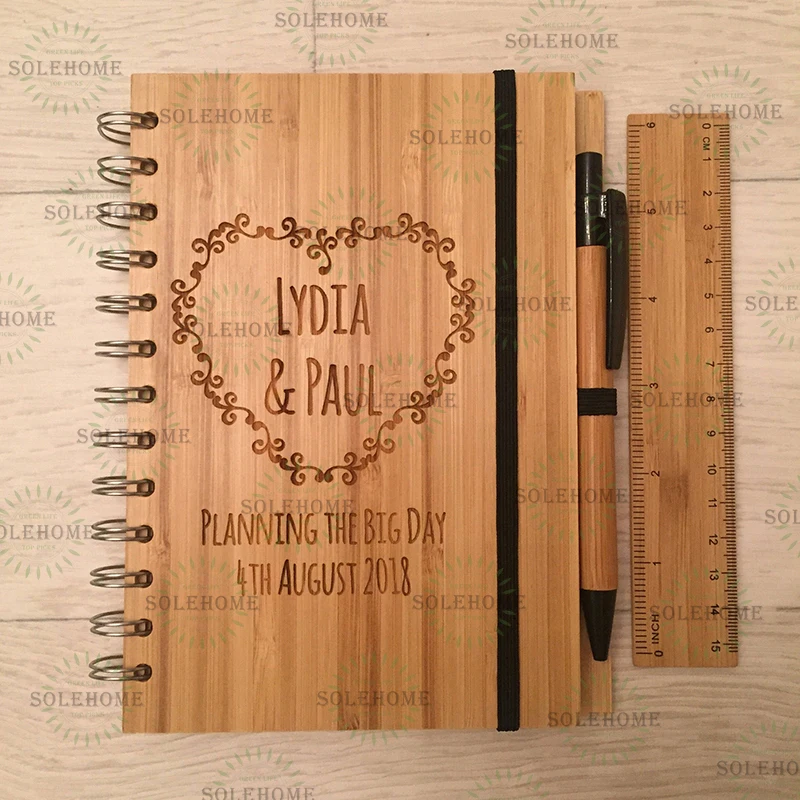 LYDIA
& PAUL
PLANNING THE BIG DAY
4TH AUGUST 2018
0 CM 1 2 3 4 5 6 7 8 9 10 11 12 13 14 15
6 5 4 3 2 1 0 INCH
SOLEHOME